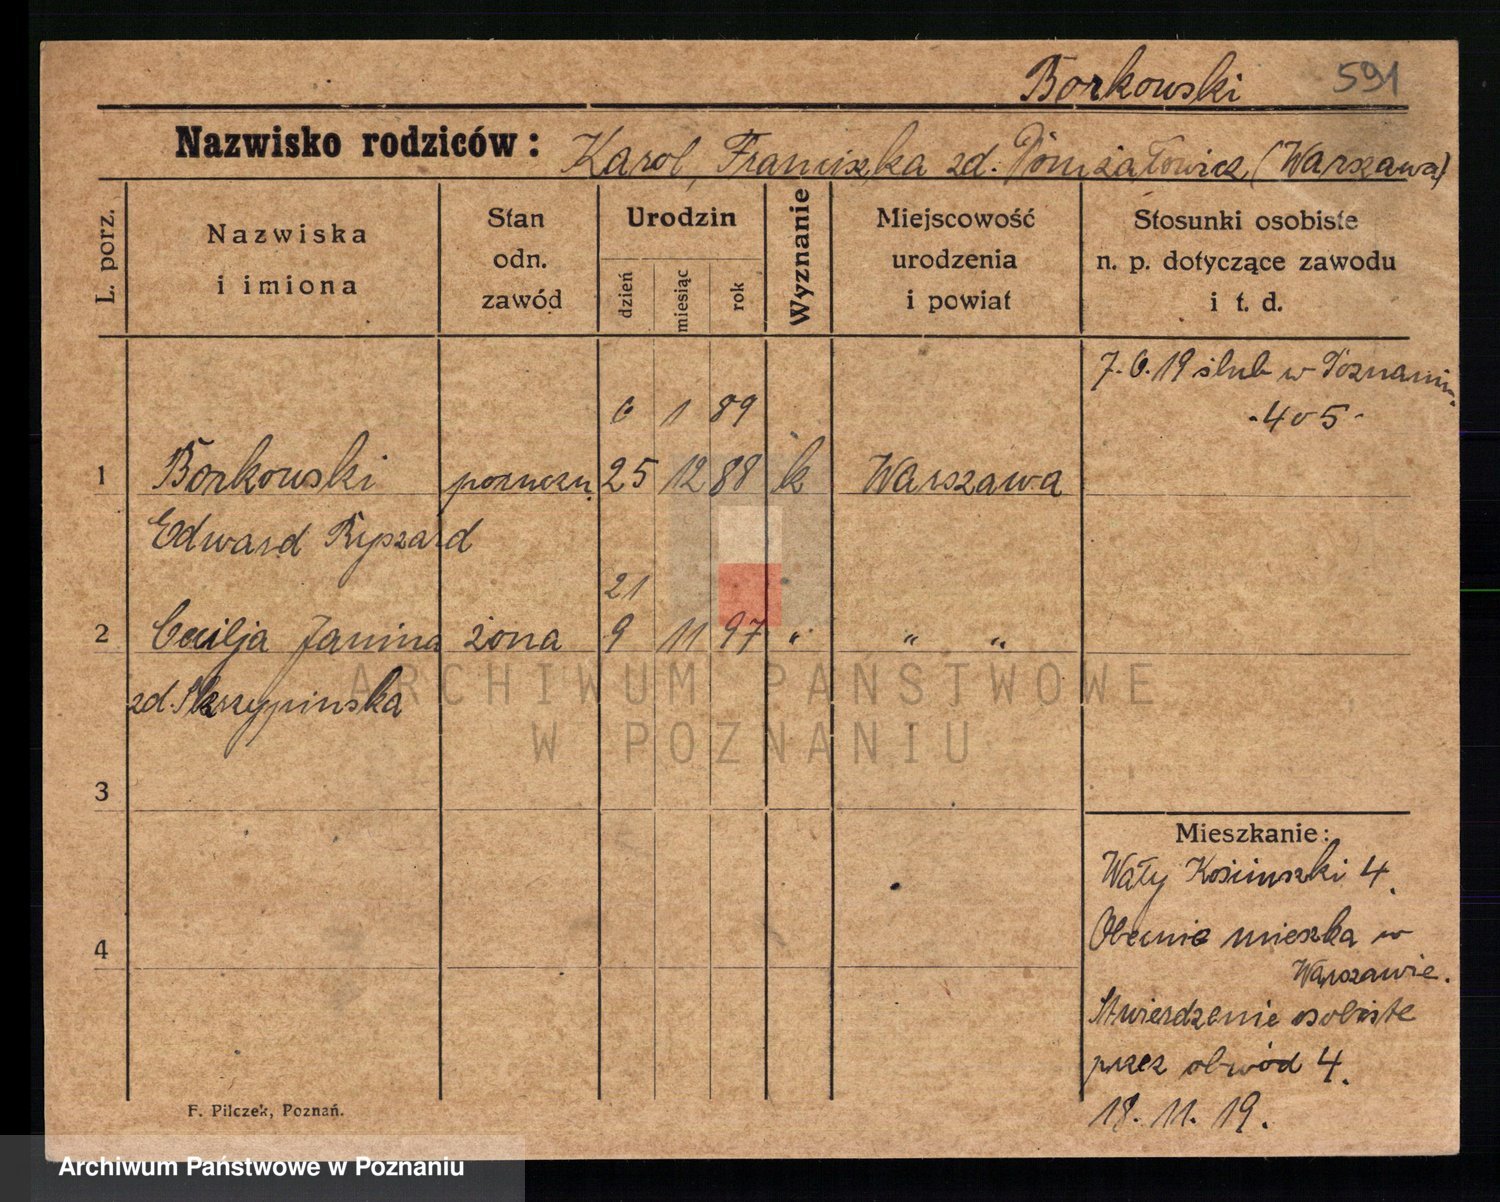 Borkowski 591
Nazwisko rodziców: Karol, Franciszka zd. (Warszawa)
L. porz.
Nazwiska
i imiona
Stan
odn.
zawód
Urodzin
dzień
miesiąc
rok
Wyznanie
Miejscowość
urodzenia
i powiat
Stosunki osobiste
n. p. dotyczące zawodu
i t. d.
7. 6. 19 ślub w Poznaniu.
6 1 89
1 Borkowski 25 12 88 k Warszawa
Edward Ryszard
21
2 Cecilja Janina żona 9 11 97 " " "
zd. Skrzypinska
ARCHIWUM PAŃSTWOWE
W POZNANIU
3
4
Mieszkanie:
Wały Kościuszki 4.
Obecnie mieszka w
Warszawie.
Stwierdzenie osobiste
przez obwód 4.
18. 11. 19.
F. Pilczek, Poznań.
Archiwum Państwowe w Poznaniu